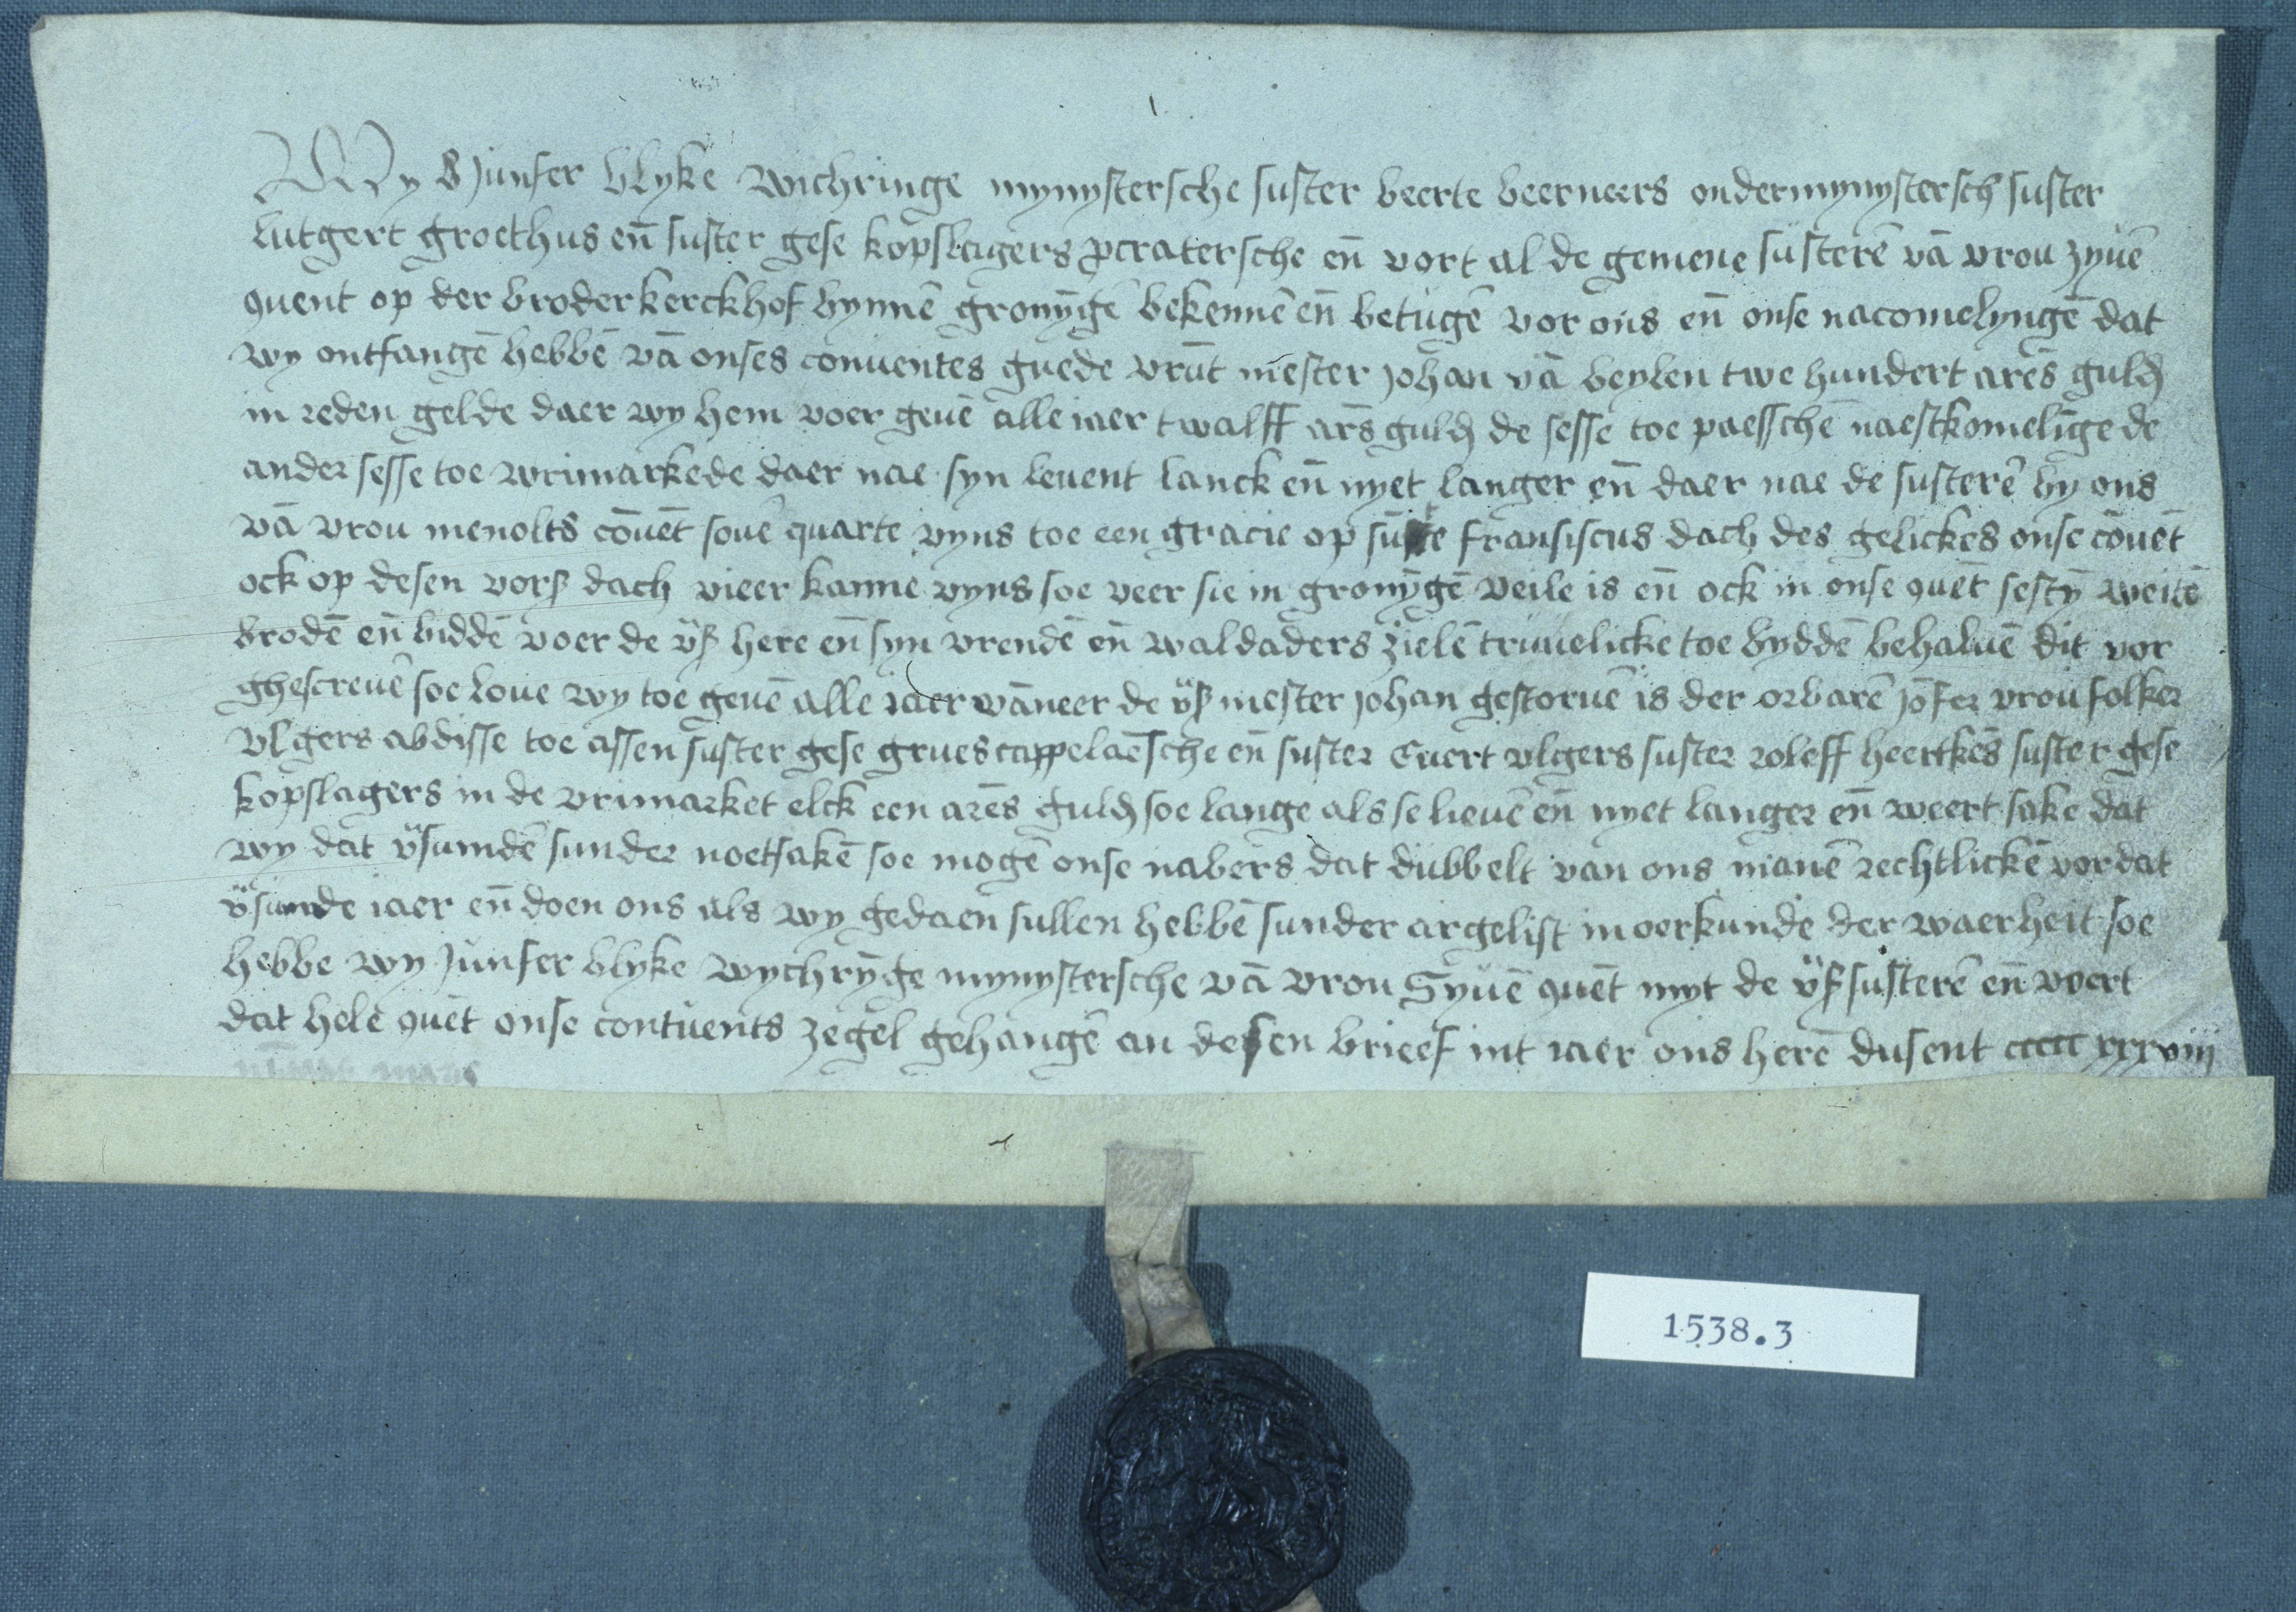 Wy Junfer Ulyke Wichringe mynystersche suster beerte beerneers ondermynystersch suster
Lutgert groethus en̄ suster gese kopslagers pcratersche en̄ vort al de gemene susterē vā vrou zyuē
quent op der broderkerckhof bynnē gronȳgē bekennē en̄ betugē vor ons en̄ onse nacomelyngē dat
wy ontfangē hebbē vā onses conuentes guede vrūt mester Johan vā beylen twe hundert arēs guld
in reden gelde daer wy hem voer geuē alle iaer twalff arēs guld de sesse toe paesschē naestkomelīge de
ander sesse toe vrimarkede daer nae syn leuent lanck en̄ nyet langer en̄ daer nae de susterē by ons
vā vrou menolts cōuēt souē quarte wyns toe een gracie op sūte fransiscus dach des gelickes onse cōuēt
ock op desen vors dach vieer kanne wyns soe veer sie in gronȳgē veile is en̄ ock in onse quēt sestȳ weitē
brodē en̄ biddē voer de vs here en̄ syn vrendē en̄ waldaders zielē truuelicke toe byddē behaluē dit vor
ghescreuē soe loue wy toe geuē alle iaer wāneer de vs mester Johan gestoruē is der orbarē Jōfer vrou folker
Ulgers abdisse toe assen suster gese grues cappelaēsche en̄ suster Euert ulgers suster roleff heertkēs suster gese
kopslagers in de vrimarket elck een arēs guld soe lange als se lieuē en̄ nyet langer en̄ weert sake dat
wy dat vsumdē sunder noetsakē soe mogē onse nabers dat dubbelt van ons manē rechtlickē vor dat
vsumde iaer en̄ doen ons als wy gedaen sullen hebbē sunder argelist in oerkunde der waerheit soe
hebbe wy Junfer Ulyke Wychrȳge mynystersche vā vrou Syuē quēt myt de vs susterē en̄ voert
dat hele quēt onse contuents zegel gehangē an desen brieef int iaer ons herē dusent ccccc xxxviij
1538.3